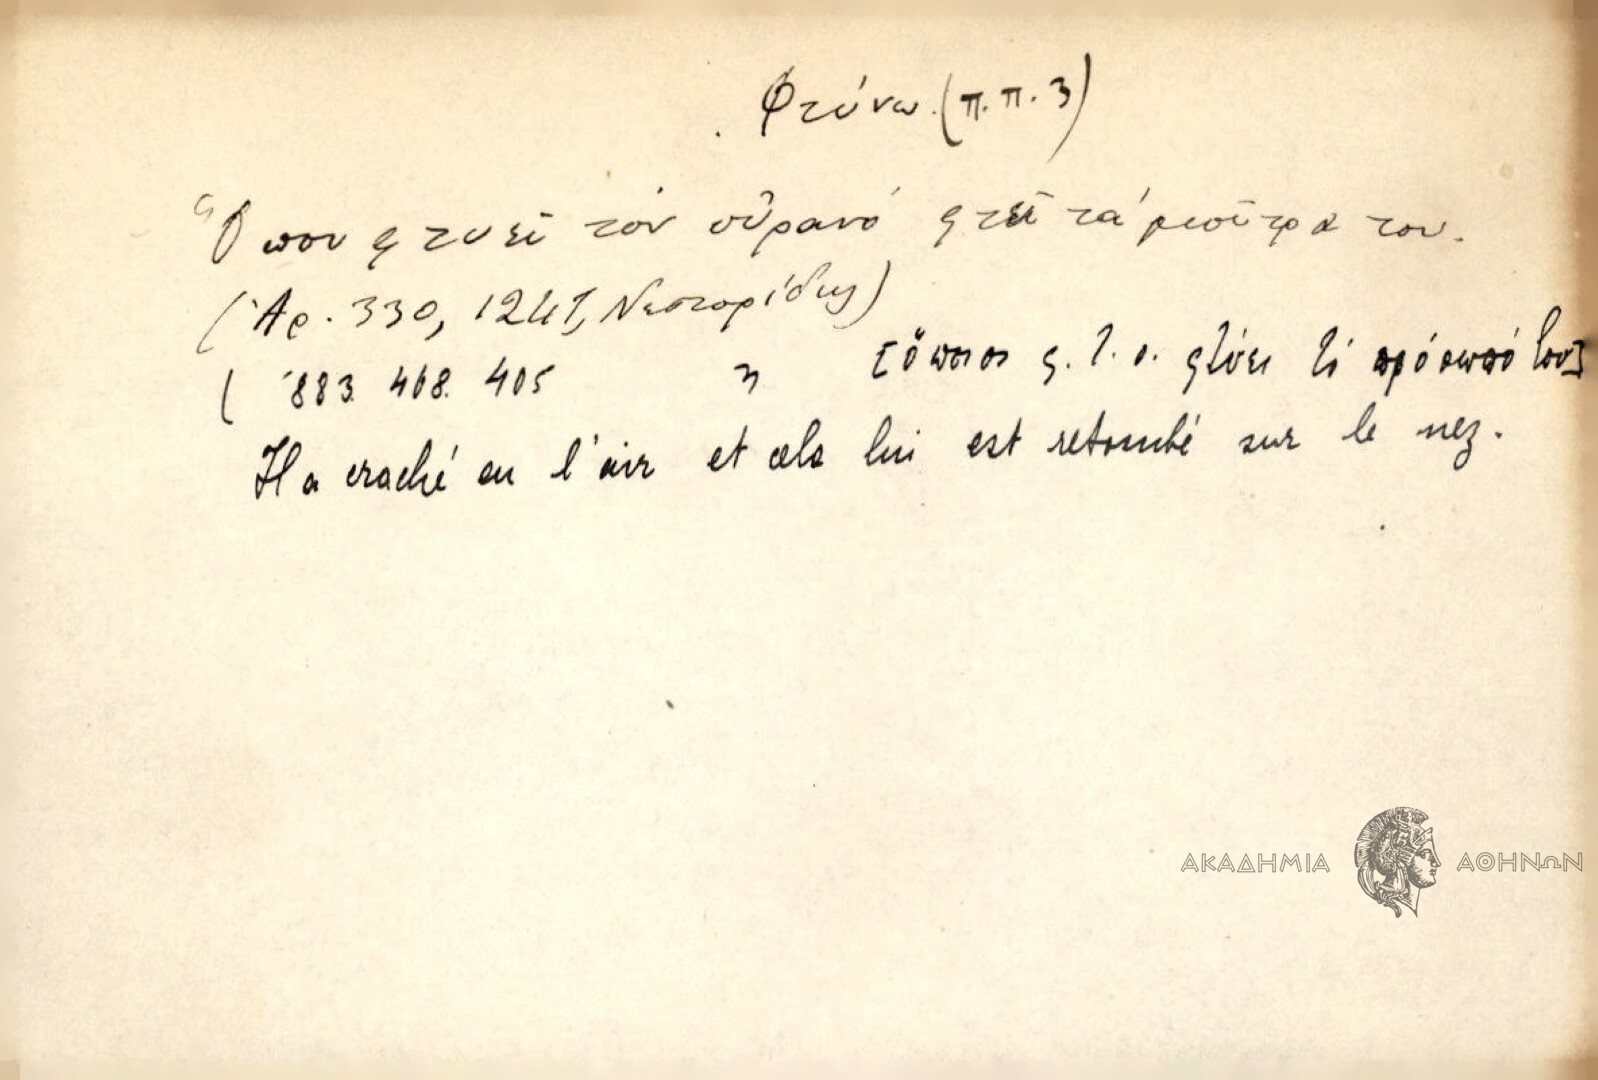 Φτύνω (π.π.3)
Ὅπου φτυεῖ τὸν οὐρανό φτεῖ τὰ μοῦτρα του.
(Ἀρ. 330, 1241, Νεστορίδης)
( 883. 468. 405 " [ὅποιος φ. τ. ο. φτύει τό πρόσωπό του]
Il a craché en l'air et cela lui est retombé sur le nez.
ΑΚΑΔΗΜΙΑ ΑΘΗΝΩΝ